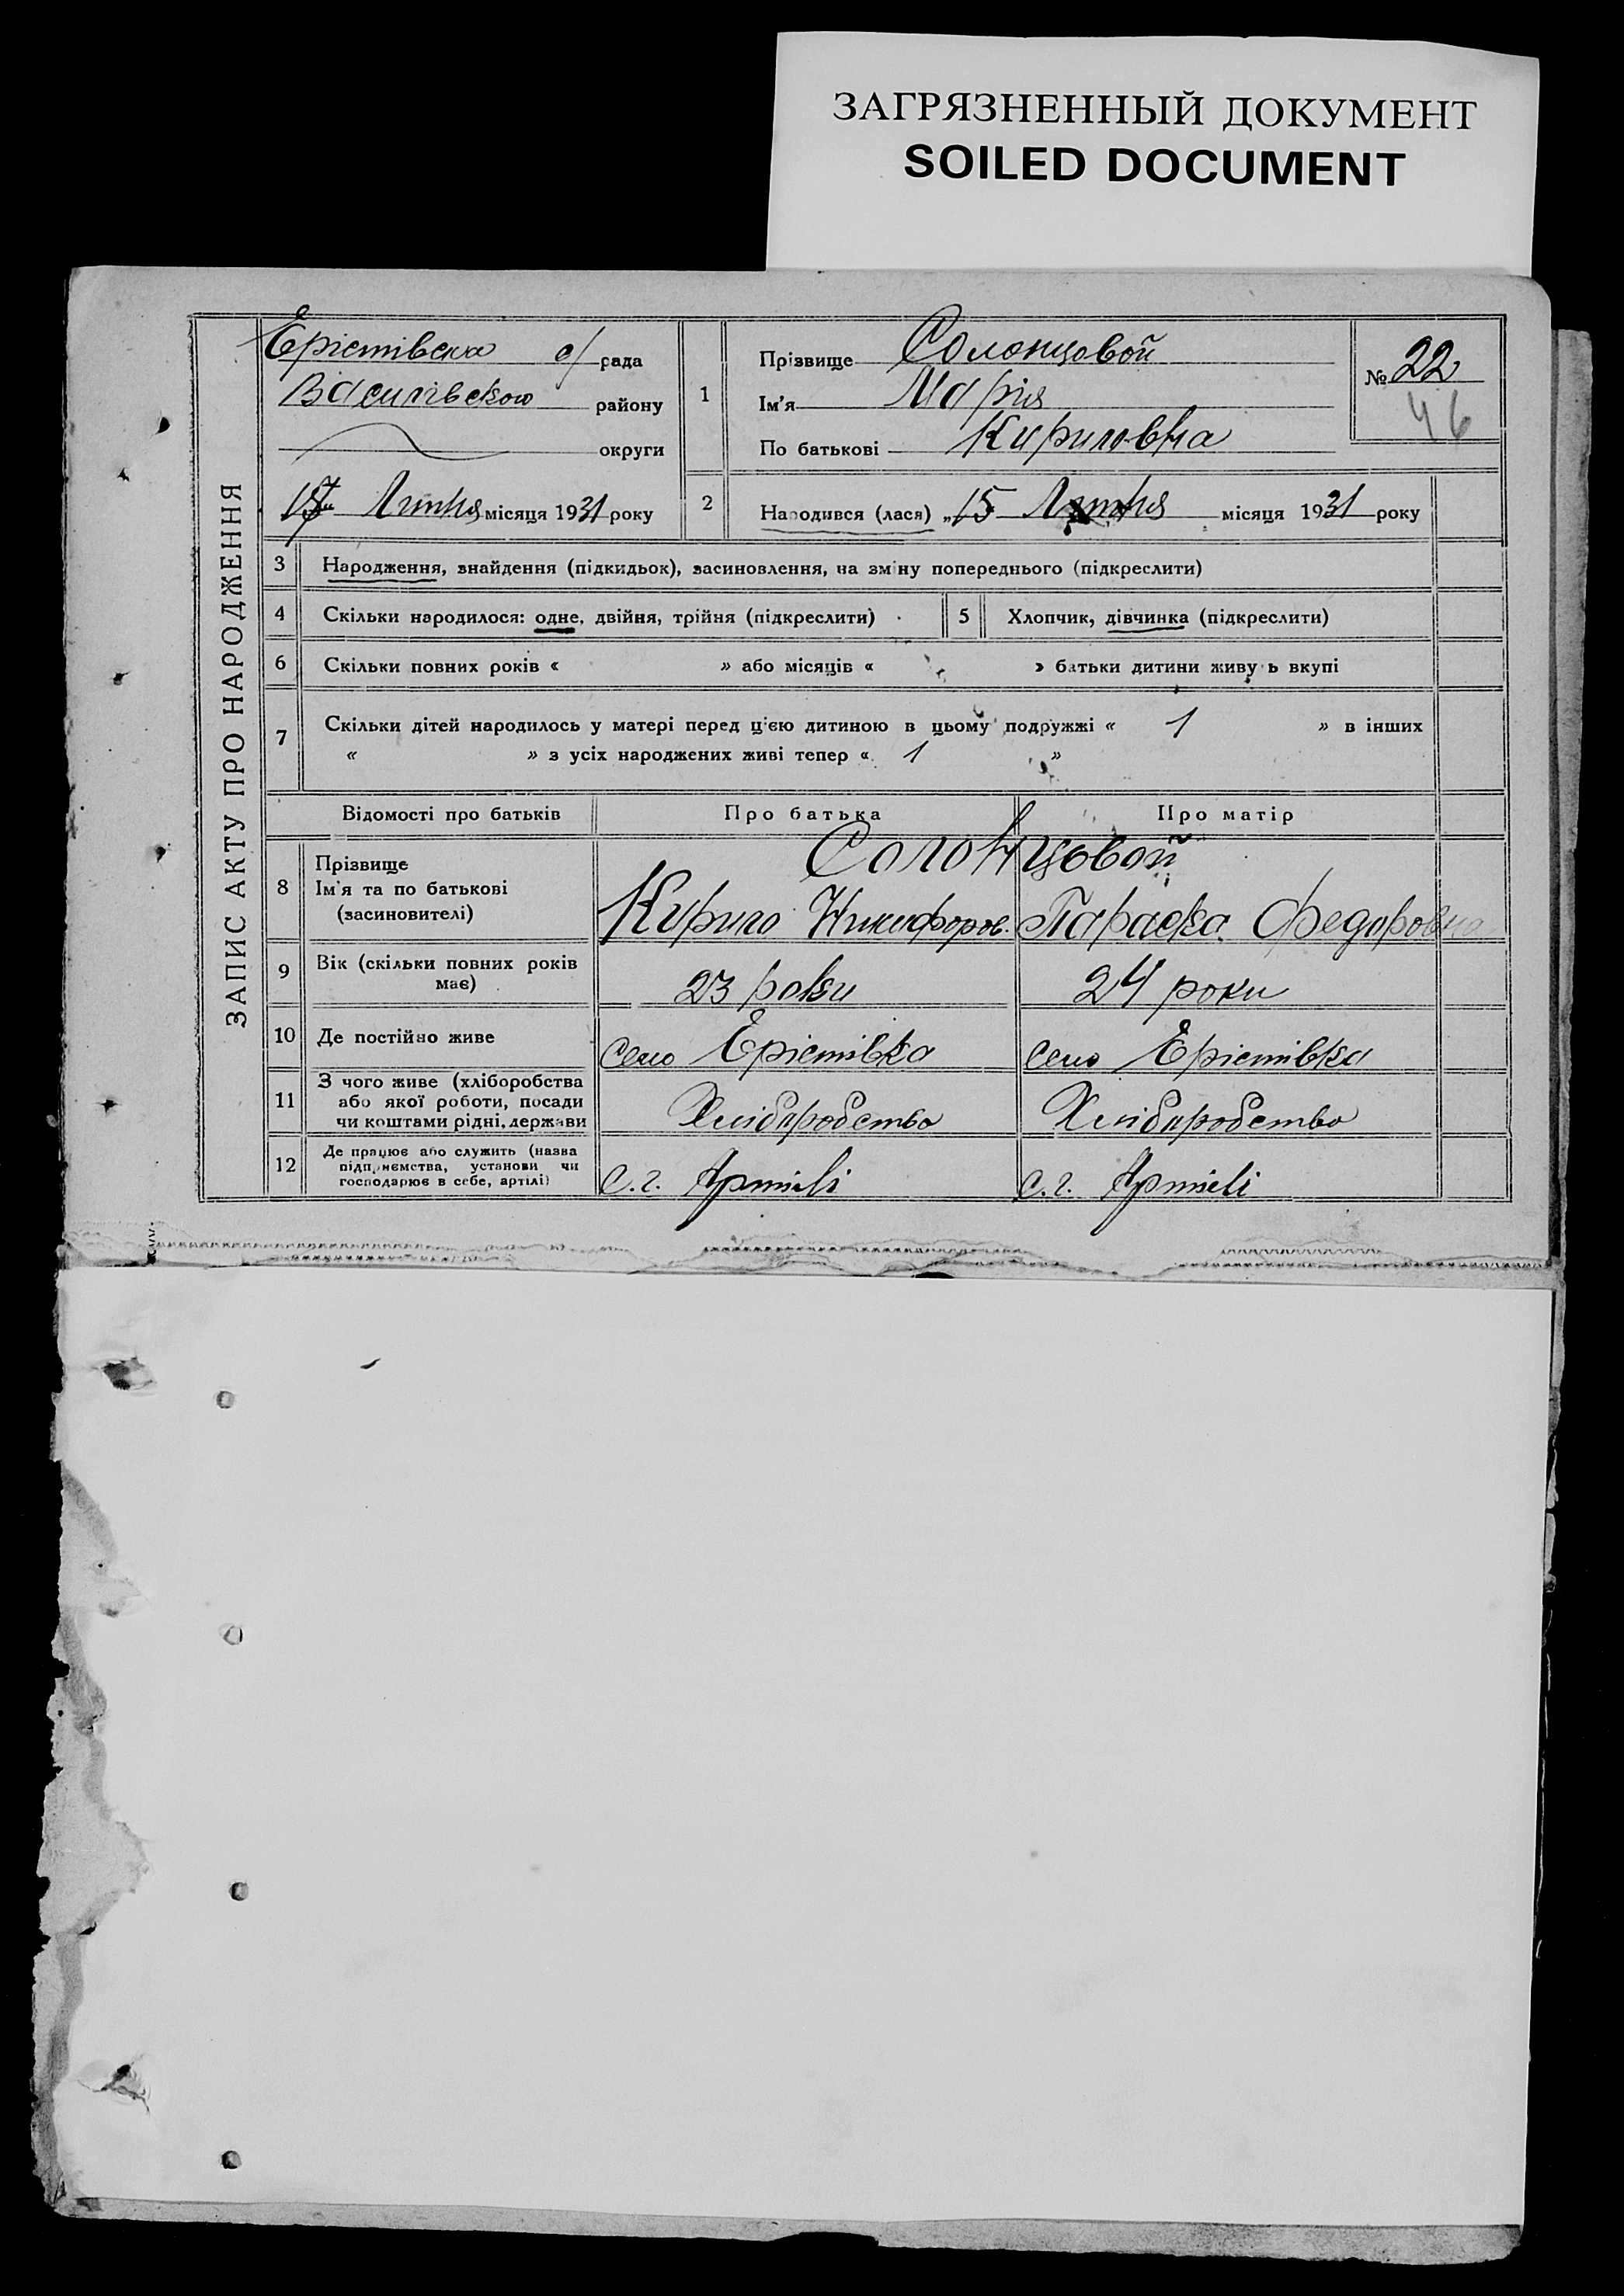 ЗАГРЯЗНЕННЫЙ ДОКУМЕНТ
SOILED DOCUMENT
ЗАПИС АКТУ ПРО НАРОДЖЕННЯ
Ерістівська с/рада
Василівского району
округи
Липня місяця 1931 року
1
Прізвище Солонцовой
Ім'я Марія
По батькові Кириловна
№ 22
46
2
Народився (лася) „15 Липня місяця 1931 року
3 Народження, знайдення (підкидьок), засиновлення, на зміну попереднього (підкреслити)
4 Скільки народилося: одне, двійня, трійня (підкреслити)
5 Хлопчик, дівчинка (підкреслити)
6 Скільки повних років « » або місяців « » батьки дитини живуть вкупі
7 Скільки дітей народилось у матері перед цією дитиною в цьому подружжі « 1 » в інших
« » з усіх народжених живі тепер « 1 »
Відомості про батьків Про батька Про матір
8 Прізвище
Ім'я та по батькові
(засиновителі)
Солонцовой
Кирило Никифоров. Параска Федоровна
9 Вік (скільки повних років
має)
23 роки 24 роки
10 Де постійно живе село Ерістівка село Ерістівка
11 З чого живе (хліборобства
або якої роботи, посади
чи коштами рідні, держави
Хліборобство Хліборобство
12 Де працює або служить (назва
підприємства, установи чи
господарює в себе, артілі)
с.г. Артілі с.г. Артілі